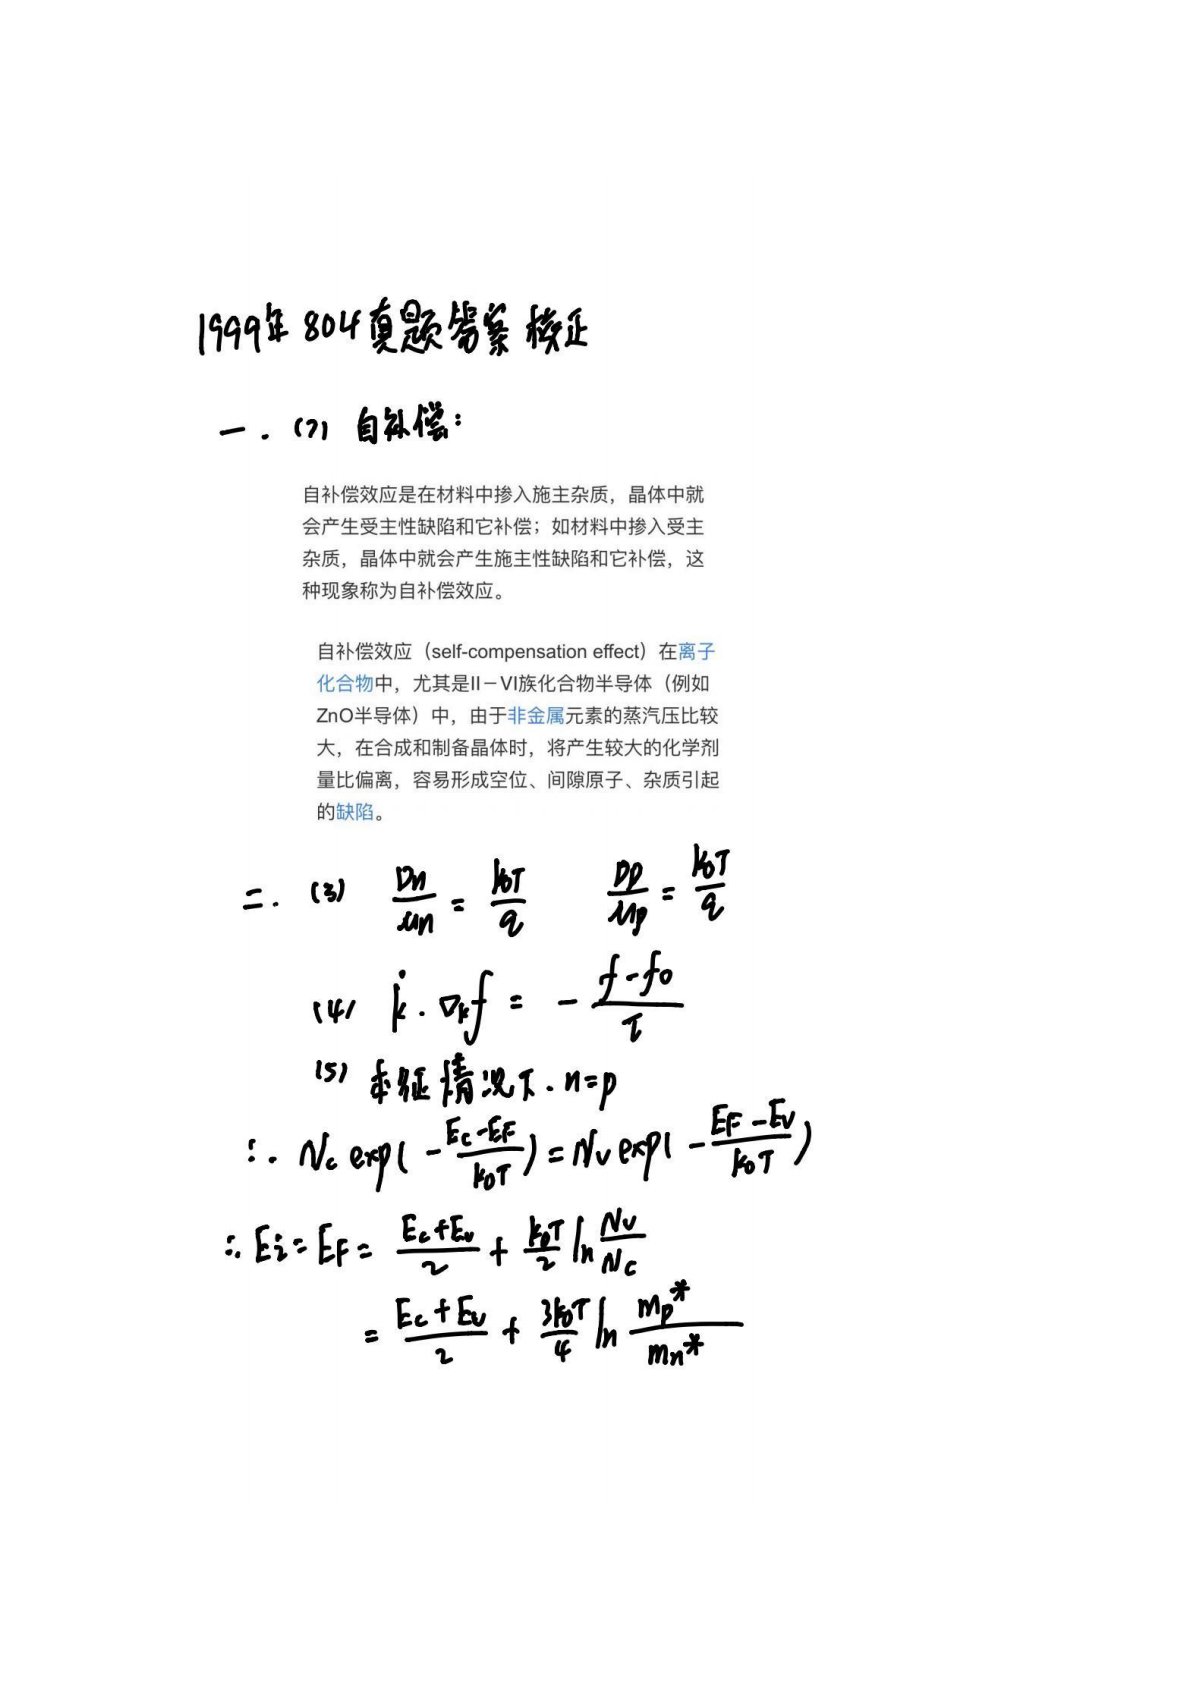 1999年 804真题答案 校正
一.(7) 自补偿:
自补偿效应是在材料中掺入施主杂质，晶体中就
会产生受主性缺陷和它补偿；如材料中掺入受主
杂质，晶体中就会产生施主性缺陷和它补偿，这
种现象称为自补偿效应。
自补偿效应（self-compensation effect）在离子
化合物中，尤其是II－VI族化合物半导体（例如
ZnO半导体）中，由于非金属元素的蒸汽压比较
大，在合成和制备晶体时，将产生较大的化学剂
量比偏离，容易形成空位、间隙原子、杂质引起
的缺陷。
二.(3) Dn/μn = k0T/q Dp/μp = k0T/q
(4) k̇·∇kf = -(f-f0)/τ
(5) 本征情况下.n=p
∴ Nc exp(-(Ec-EF)/k0T) = Nv exp(-(EF-Ev)/k0T)
∴ Ei=EF= (Ec+Ev)/2 + k0T/2 ln Nv/Nc
= (Ec+Ev)/2 + 3k0T/4 ln mp*/mn*